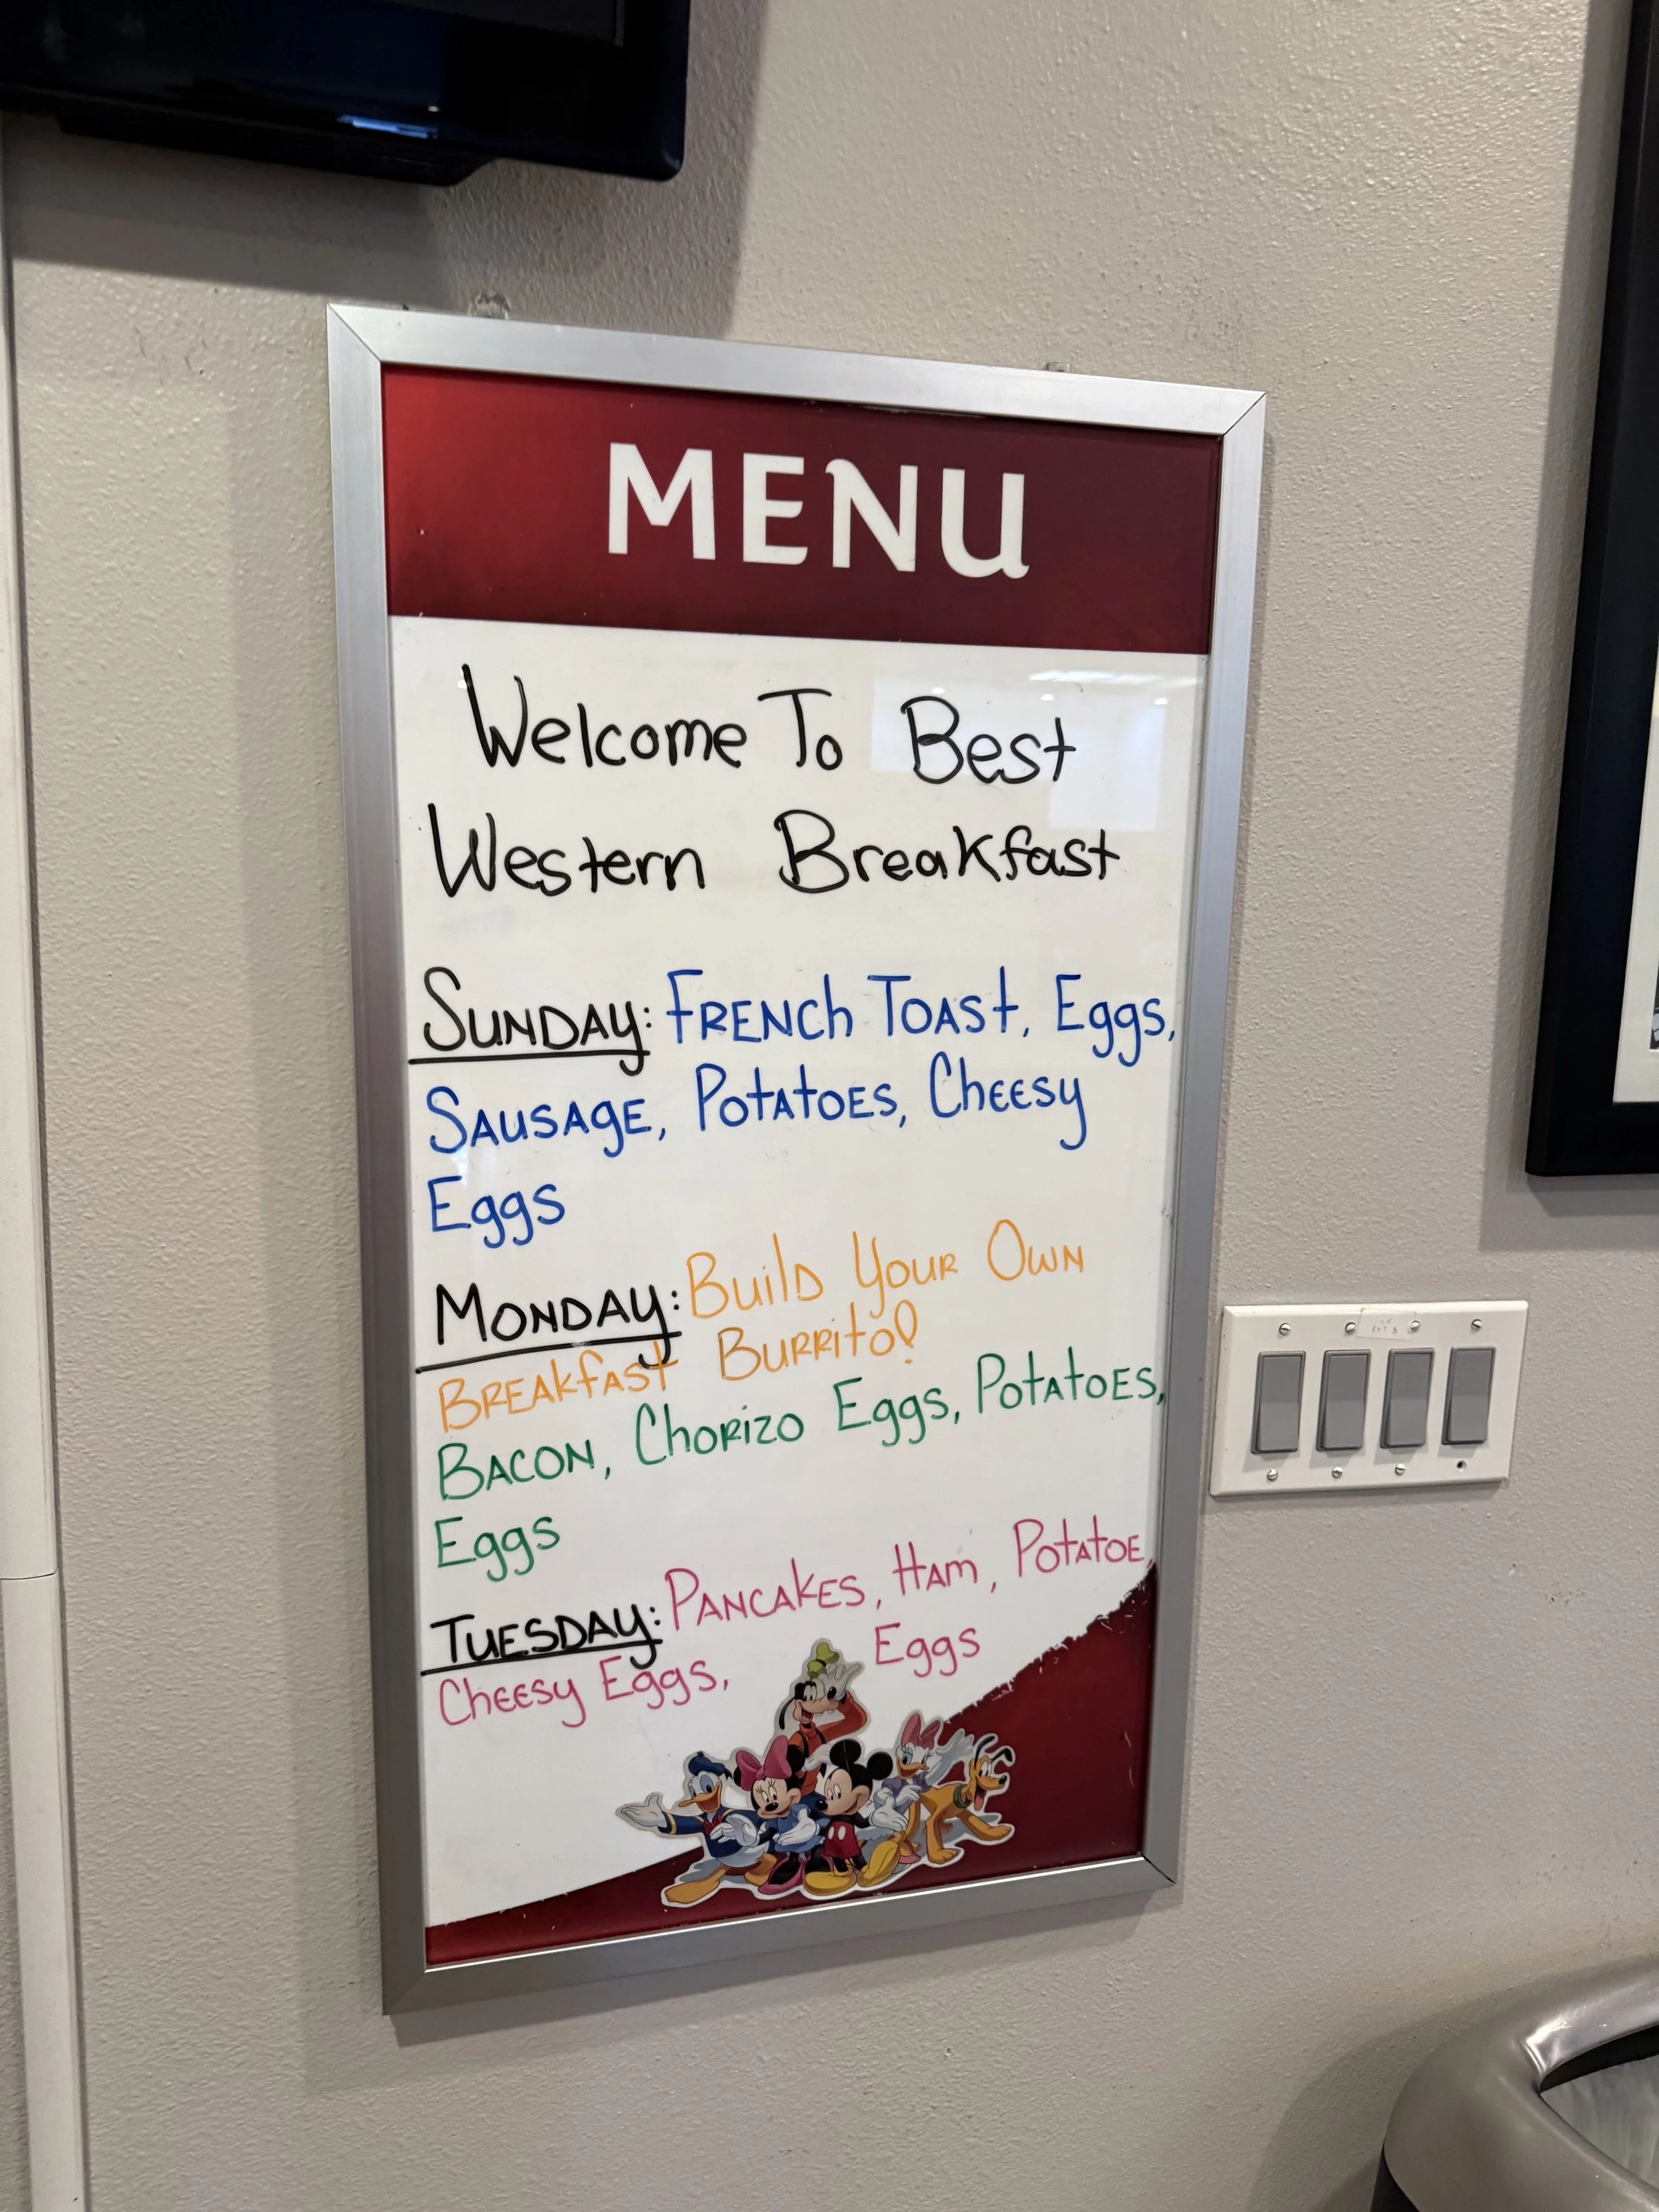 MENU
Welcome To Best
Western Breakfast
SUNDAY: FRENCh TOASt, Eggs,
SAUSAgE, POtAtOES, ChEESy
Eggs
MONDAY: BuilD YOUR OWN
BREAkfASt BURRitO!
BACON, ChORizO Eggs, POtAtOES,
Eggs
TUESDAY: PANCAkES, HAm, POtAtOE,
ChEESy Eggs, Eggs